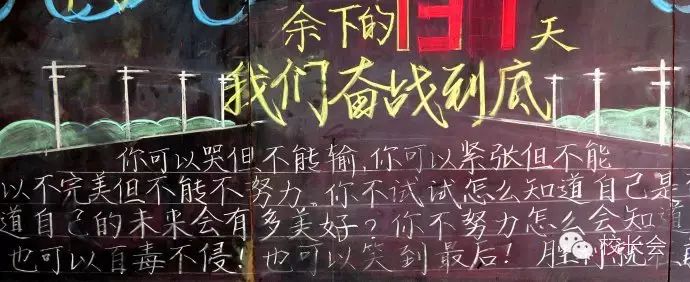 余下的131天
我们奋战到底
你可以哭但不能输,你可以紧张但不能
以不完美但不能不努力。你不试试怎么知道自己是
道自己的未来会有多美好?你不努力怎么会知道
也可以百毒不侵!也可以笑到最后!胜利就
校长会